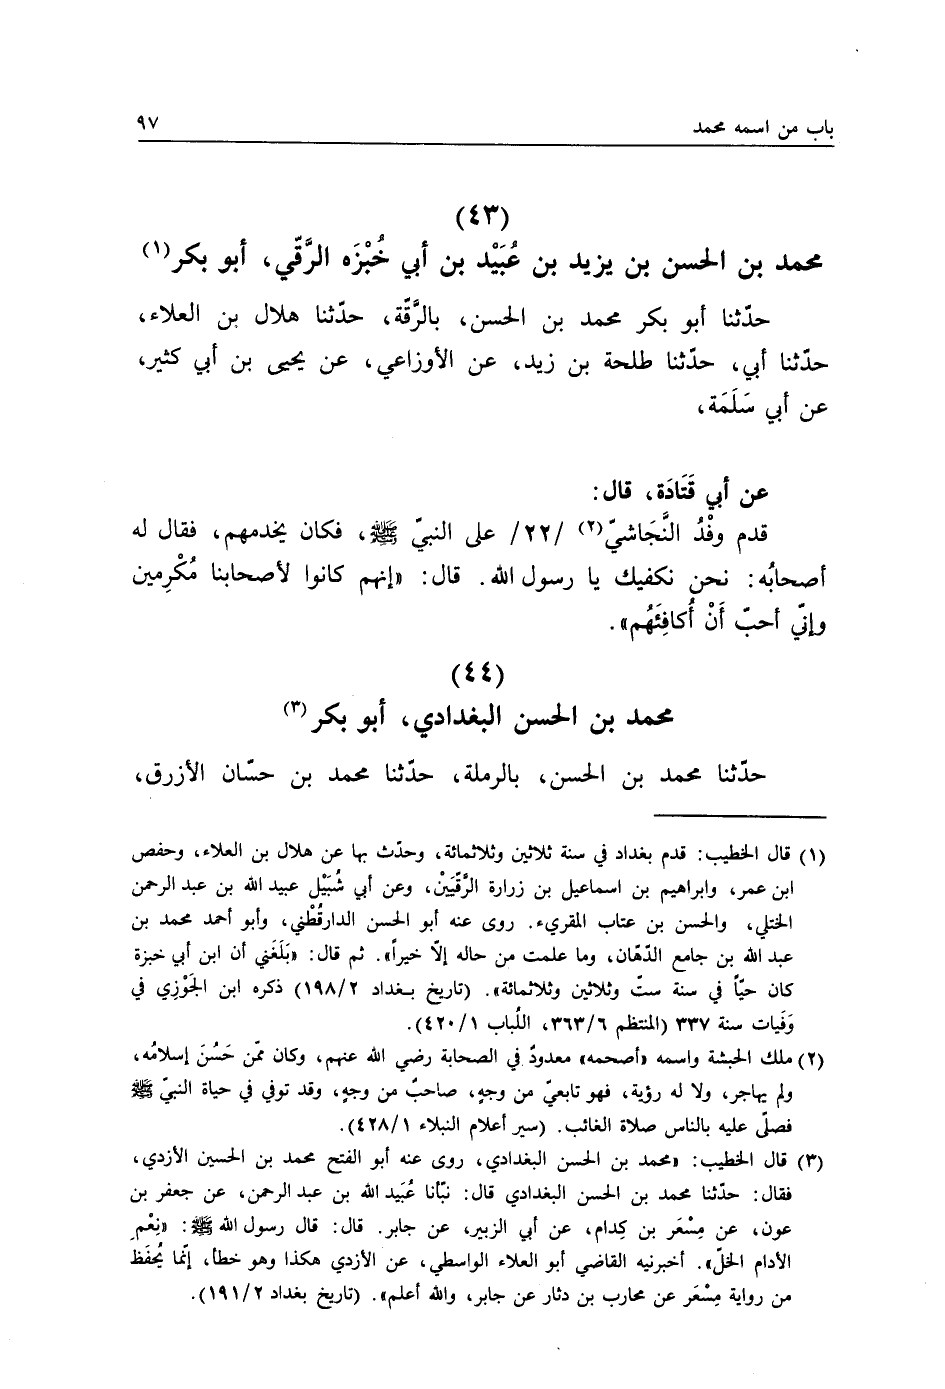 باب من اسمه محمد ٩٧
(٤٣)
محمد بن الحسن بن يزيد بن عُبَيْد بن أبي خُبْزَه الرَّقّي، أبو بكر(١)
حدّثنا أبو بكر محمد بن الحسن، بالرَّقّة، حدّثنا هلال بن العلاء،
حدّثنا أبي، حدّثنا طلحة بن زيد، عن الأوزاعي، عن يحيى بن أبي كثير،
عن أبي سَلَمَة،
عن أبي قَتَادَة، قال:
قدم وفْدُ النَّجَاشيّ(٢) /٢٢/ على النبيّ ﷺ، فكان يخدمهم، فقال له
أصحابُه: نحن نكفيك يا رسول الله. قال: «إنهم كانوا لأصحابنا مُكْرِمين
وإنّي أحبّ أَنْ أُكافِئَهُم».
(٤٤)
محمد بن الحسن البغدادي، أبو بكر(٣)
حدّثنا محمد بن الحسن، بالرملة، حدّثنا محمد بن حسّان الأزرق،
(١) قال الخطيب: قدم بغداد في سنة ثلاثين وثلاثمائة، وحدّث بها عن هلال بن العلاء، وحفص
ابن عمر، وابراهيم بن اسماعيل بن زرارة الرَّقّيَيْن، وعن أبي شُبَيْل عبيد الله بن عبد الرحمن
الختلي، والحسن بن عتاب المقريء. روى عنه أبو الحسن الدارقُطْني، وأبو أحمد محمد بن
عبد الله بن جامع الدّهّان، وما علمت من حاله إلّا خيراً». ثم قال: «بَلَغَني أن ابن أبي خبزة
كان حيّاً في سنة ستّ وثلاثين وثلاثمائة». (تاريخ بغداد ١٩٨/٢) ذكره ابن الجَوْزِي في
وَفَيات سنة ٣٣٧ (المنتظم ٣٦٣/٦، اللُباب ٤٢٠/١).
(٢) ملك الحبشة واسمه «أصحمه» معدودٌ في الصحابة رضي الله عنهم، وكان ممّن حَسُنَ إسلامُه،
ولم يهاجر، ولا له رؤية، فهو تابعيّ من وجهٍ، صاحبٌ من وجهٍ، وقد توفي في حياة النبيّ ﷺ
فصلّى عليه بالناس صلاة الغائب. (سير أعلام النبلاء ٤٢٨/١).
(٣) قال الخطيب: «محمد بن الحسن البغدادي، روى عنه أبو الفتح محمد بن الحسين الأزدي،
فقال: حدّثنا محمد بن الحسن البغدادي قال: نبّأنا عُبَيد الله بن عبد الرحمن، عن جعفر بن
عون، عن مِسْعَر بن كِدام، عن أبي الزبير، عن جابر. قال: قال رسول الله ﷺ: «نِعْمَ
الأدام الخلّ». أخبرنيه القاضي أبو العلاء الواسطي، عن الأزدي هكذا وهو خطأ، إنّما يُحفَظ
من رواية مِسْعَر عن محارب بن دثار عن جابر، والله أعلم». (تاريخ بغداد ١٩١/٢).